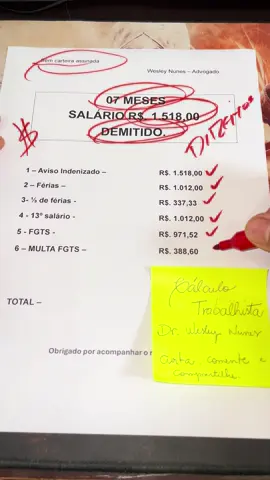 Sem carteira assinada
Wesley Nunes – Advogado
07 MESES
SALÁRIO R$. 1.518,00
DEMITIDO.
DIREITOS
$
1 – Aviso Indenizado – R$. 1.518,00
2 – Férias – R$. 1.012,00
3- ⅓ de férias- R$. 337,33
4 - 13º salário - R$. 1.012,00
5 - FGTS- R$. 971,52
6 – MULTA FGTS - R$. 388,60
Cálculo
Trabalhista
Dr. Wesley Nunes
Curta, comente e
compartilhe
TOTAL –
Obrigado por acompanhar o